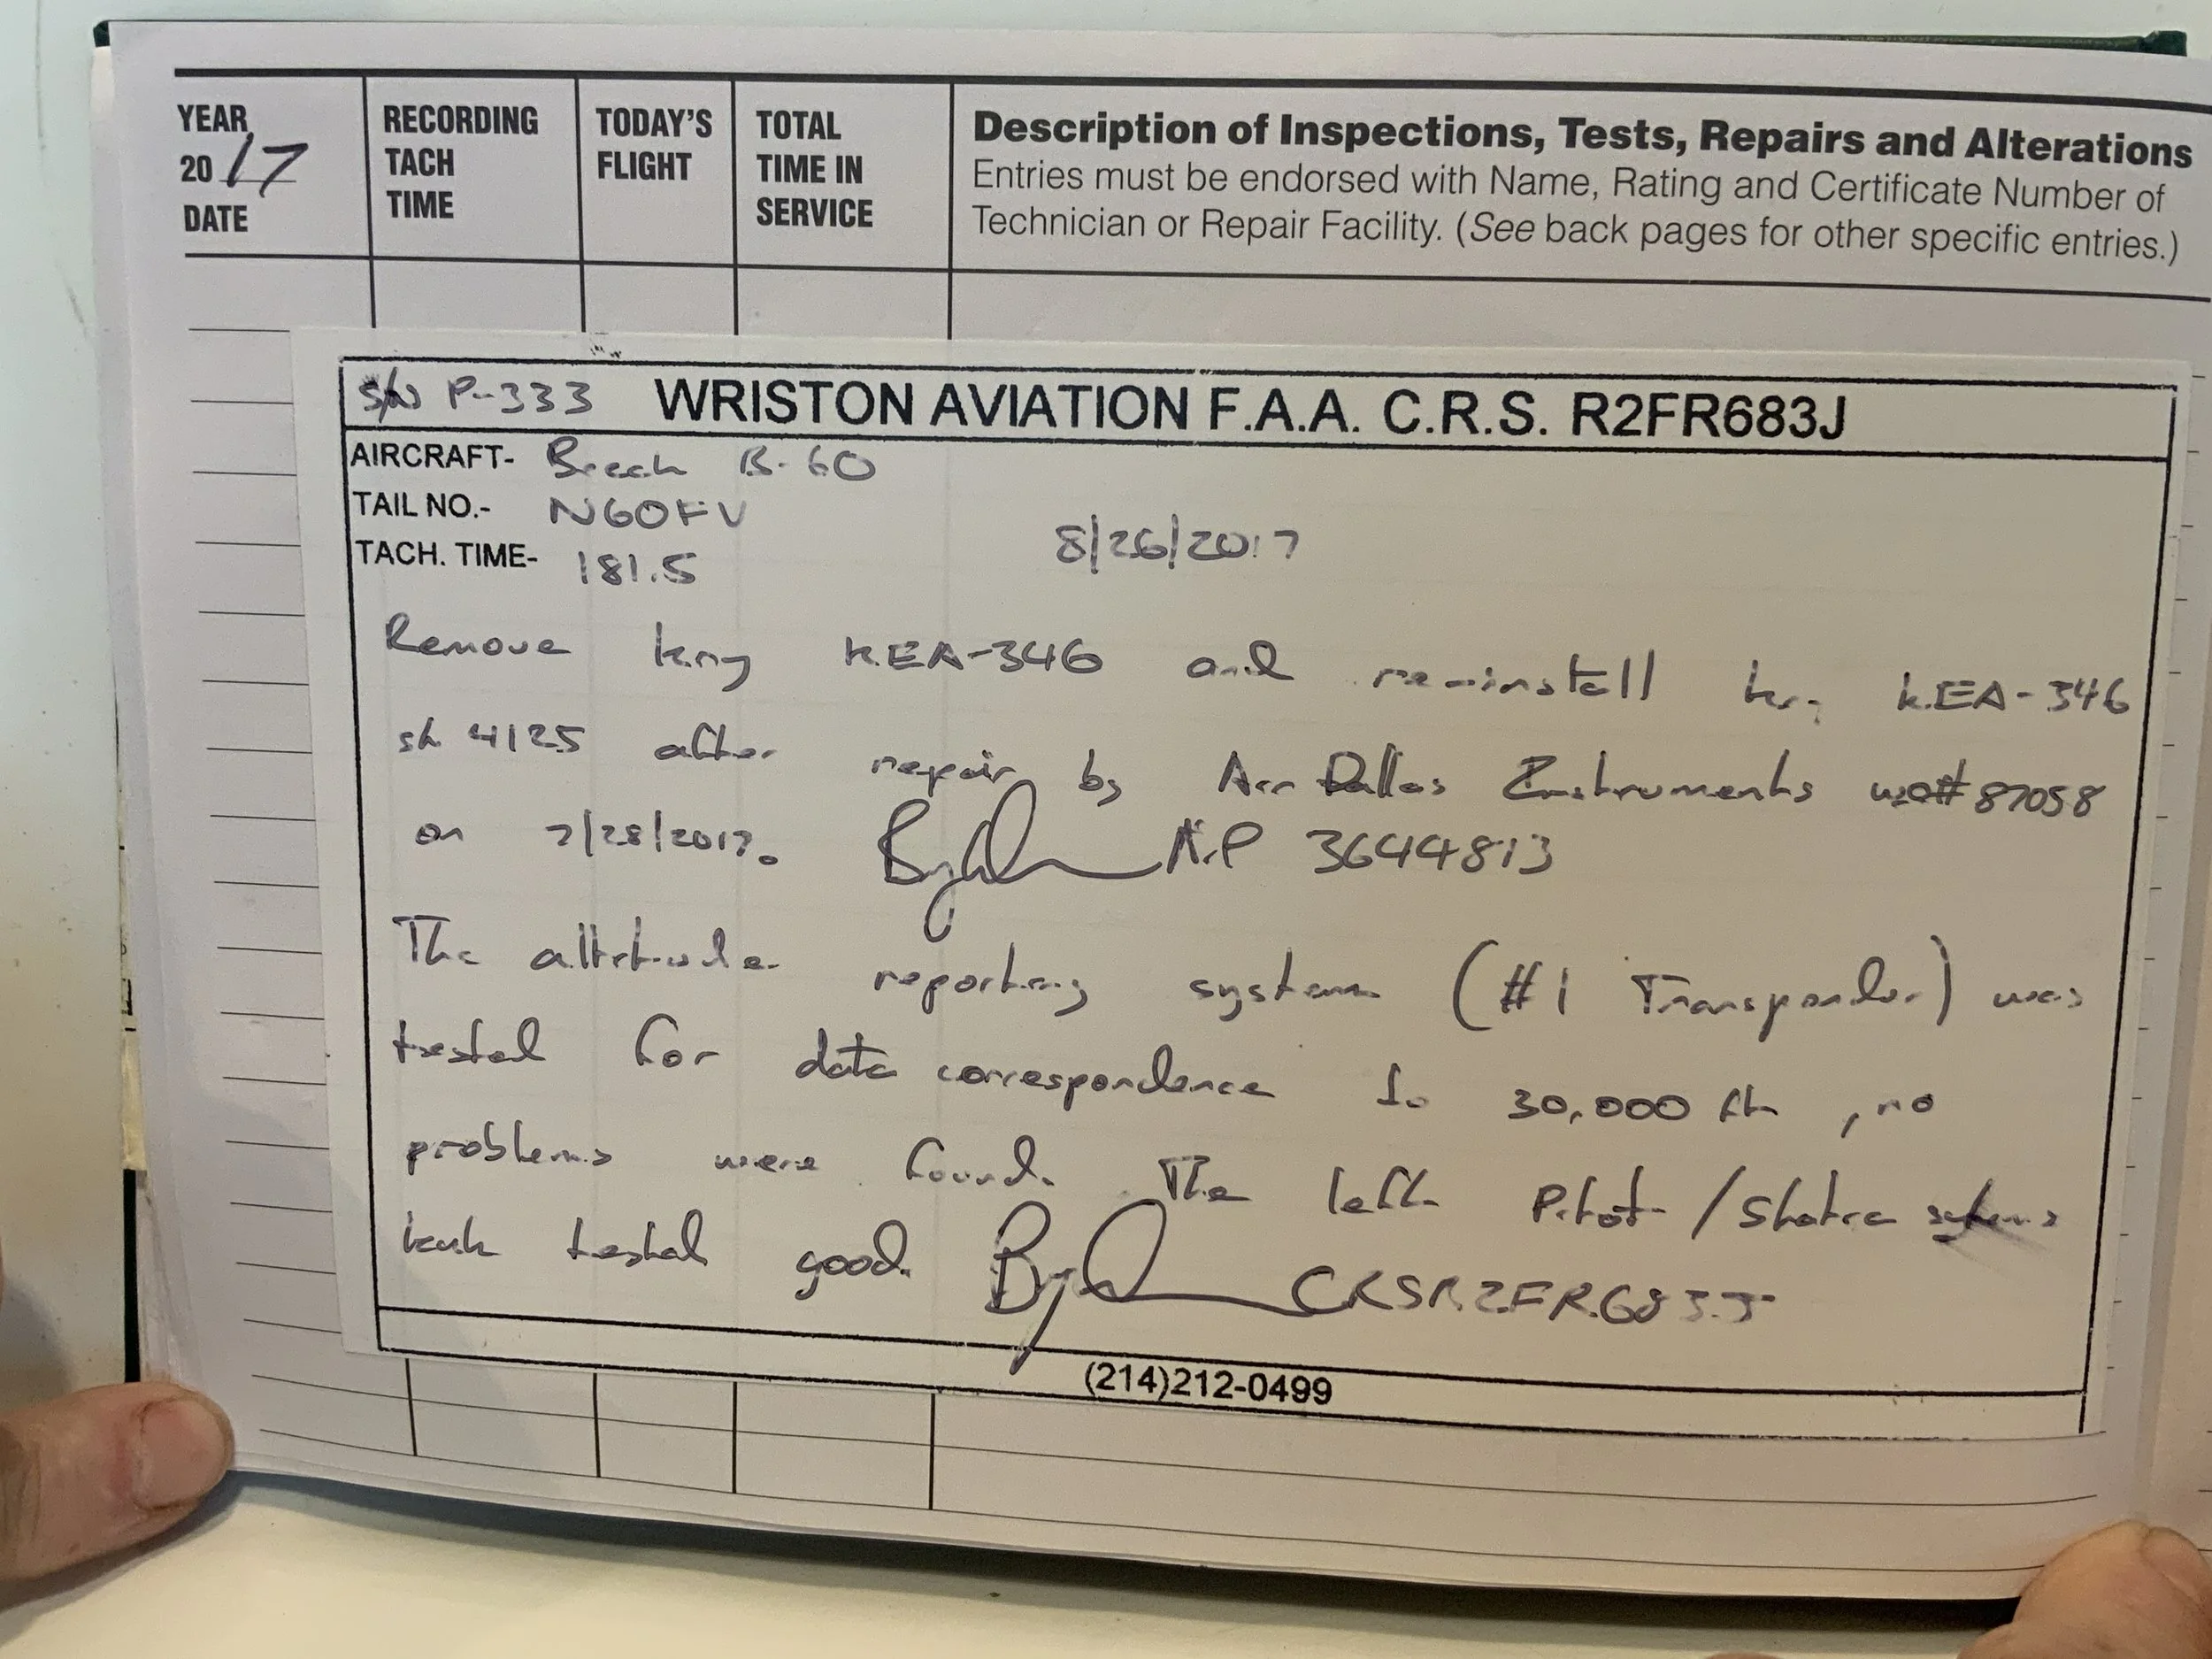 YEAR
2017
DATE
RECORDING
TACH
TIME
TODAY'S
FLIGHT
TOTAL
TIME IN
SERVICE
Description of Inspections, Tests, Repairs and Alterations
Entries must be endorsed with Name, Rating and Certificate Number of
Technician or Repair Facility. (See back pages for other specific entries.)
S/N P-333 WRISTON AVIATION F.A.A. C.R.S. R2FR683J
AIRCRAFT- Beech B-60
TAIL NO.- N60FV
8/26/2017
TACH. TIME- 181.5
Remove king KEA-346 and re-install king KEA-346
s/n 4125 after repair by Air Dallas Instruments wo# 87058
on 7/28/2017. A&P 3644813
The altitude reporting system (#1 Transponder) was
tested for data correspondence to 30,000 ft, no
problems were found. The left Pitot/Static systems
leak tested good. CRS R2FR683J
(214)212-0499